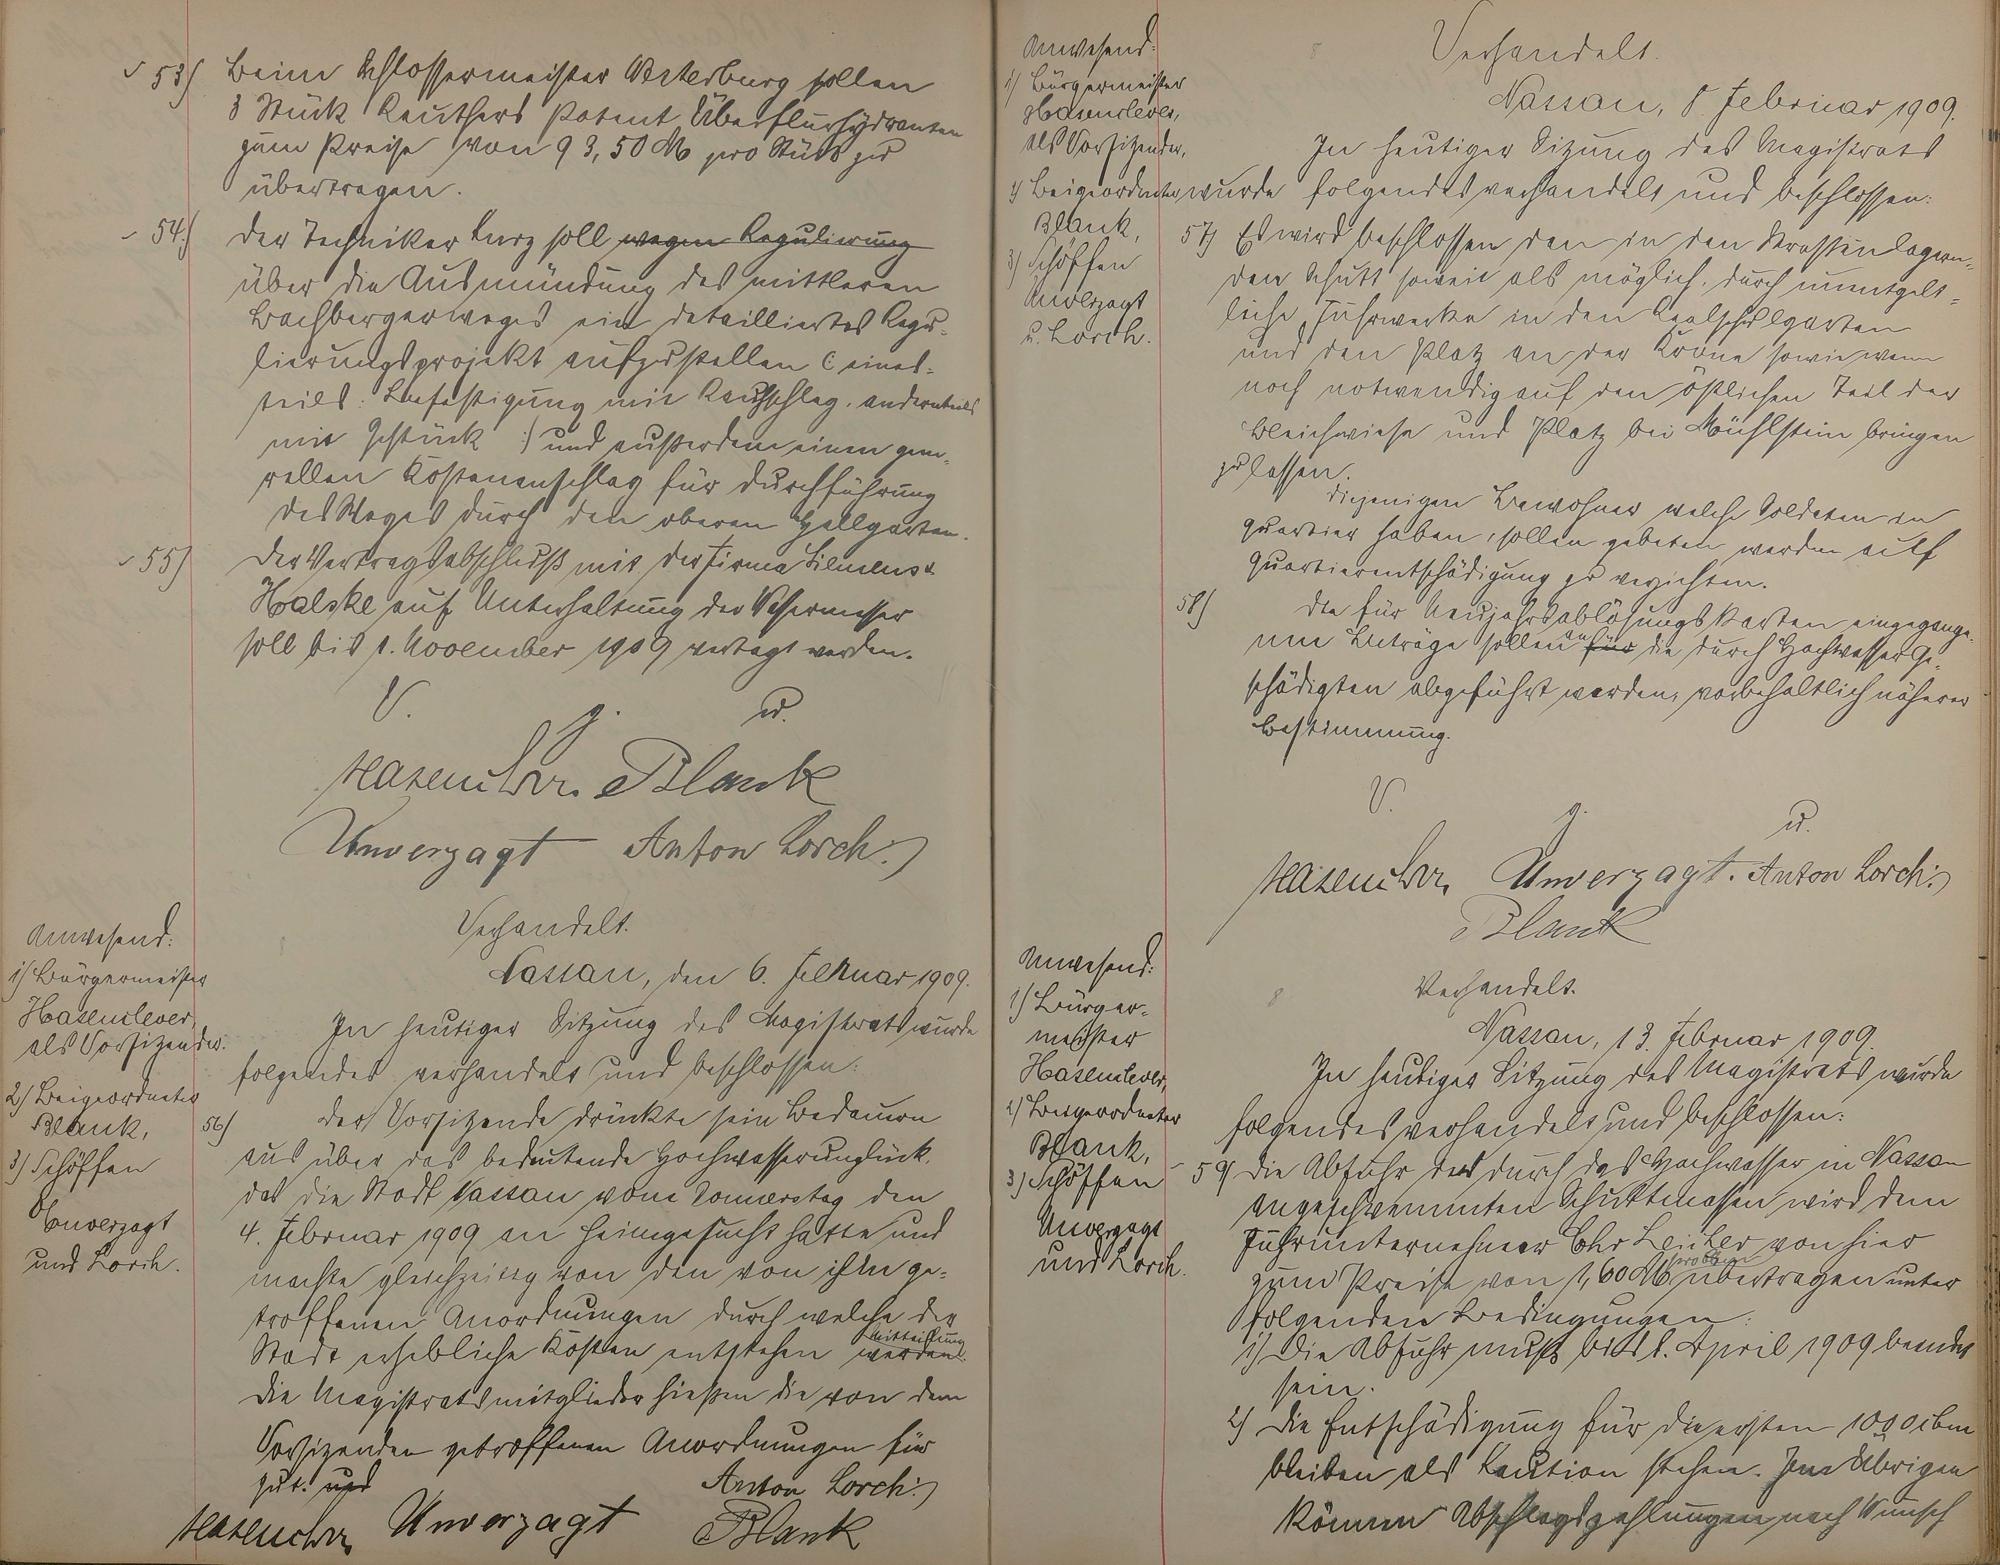 53) Beim Schlossermeister Westerburg sollen
3 Stück Reuthers Patent Überflurhydranten
zum Preise von 93,50 M pro Stück zu
übertragen.
54) Der Techniker Kurz soll wegen Regulierung
über die Ausmündung des mittleren
Bachbergerweges ein detailliertes Regu-
lierungsprojekt aufzustellen (: eines-
teils: Befestigung mit Rauschlag, andernteils
mit Gestück :) und außerdem einen gene-
rellen Kostenanschlag für Durchführung
des Weges durch den oberen Hellgarten.
55) Der Vertragsabschluß mit der Firma Siemens &
Halske auf Unterhaltung der Wassermesser
soll bis 1. November 1909 vertagt werden.
V. g. u.
Hasenclever. Blank
Unverzagt Anton Lorch:)
Verhandelt.
Nassau, den 6. Februar 1909.
Anwesend:
1) Bürgermeister
Hasenclever,
als Vorsizender.
2) Beigeordneter
Blank,
3) Schöffen
Unverzagt
und Lorch.
In heutiger Sitzung des Magistrats wurde
folgendes verhandelt und beschlossen:
56) Der Vorsizende drückte sein Bedauern
aus über das bedeutende Hochwasserunglück,
das die Stadt Nassau vom Donnerstag den
4. Februar 1909 an heimgesucht hatte und
machte gleichzeitig von den von ihm ge-
troffenen Anordnungen durch welche der
Stadt erhebliche Kosten entstehen werden Mitteilung.
Die Magistratsmitglieder hießen die von dem
Vorsizenden getroffenen Anordnungen für
gut. und
Anton Lorch:)
Hasenclever Unverzagt Blank
Anwesend:
1) Bürgermeister
Hasenclever,
als Vorsitzender,
2) Beigeordneter
Blank,
3) Schöffen
Unverzagt
u. Lorch.
Verhandelt.
Nassau, 8. Februar 1909.
In heutiger Sizung des Magistrats
wurde folgendes verhandelt und beschlossen:
57) Es wird beschlossen den in den Strassen lagern-
den Schutt soweit als möglich, durch unentgelt-
liche Fuhrwerke in den Realschulgarten
und den Platz an der Krone sowie wenn
noch notwendig auf den östlichen Teil der
Bleichwiese und Platz bei Mühlstein bringen
zu lassen.
Diejenigen Bewohner welche Soldaten in
Quartier haben, sollen gebeten werden auf
Quartierentschädigung zu verzichten.
58) Die für Neujahrsablösungskarten eingegange-
nen Beträge sollen für an die durch Hochwasser Ge-
schädigten abgeführt werden, vorbehaltlich näherer
Bestimmung.
V. g. u.
Hasenclever, Unverzagt. Anton Lorch:)
Blank
Verhandelt.
Nassau, 13. Februar 1909.
Anwesend:
1) Bürger-
meister
Hasenclever,
2) Beigeordneter
Blank,
3) Schöffen
Unverzagt
und Lorch.
In heutiger Sitzung des Magistrats wurde
folgendes verhandelt und beschlossen:
59) Die Abfuhr der durch das Hochwasser in Nassau
angeschwemmten Schuttmassen wird dem
Fuhrunternehmer Chr Leicher von hier
zum Preise von 1,60 M pro cbm übertragen unter
folgenden Bedingungen:
1) Die Abfuhr muß bis 1. April 1909 beendet
sein.
2) Die Entschädigung für die ersten 1000 cbm
bleiben als Kaution stehen. Im Übrigen
können Abschlagszahlungen nach Wunsch